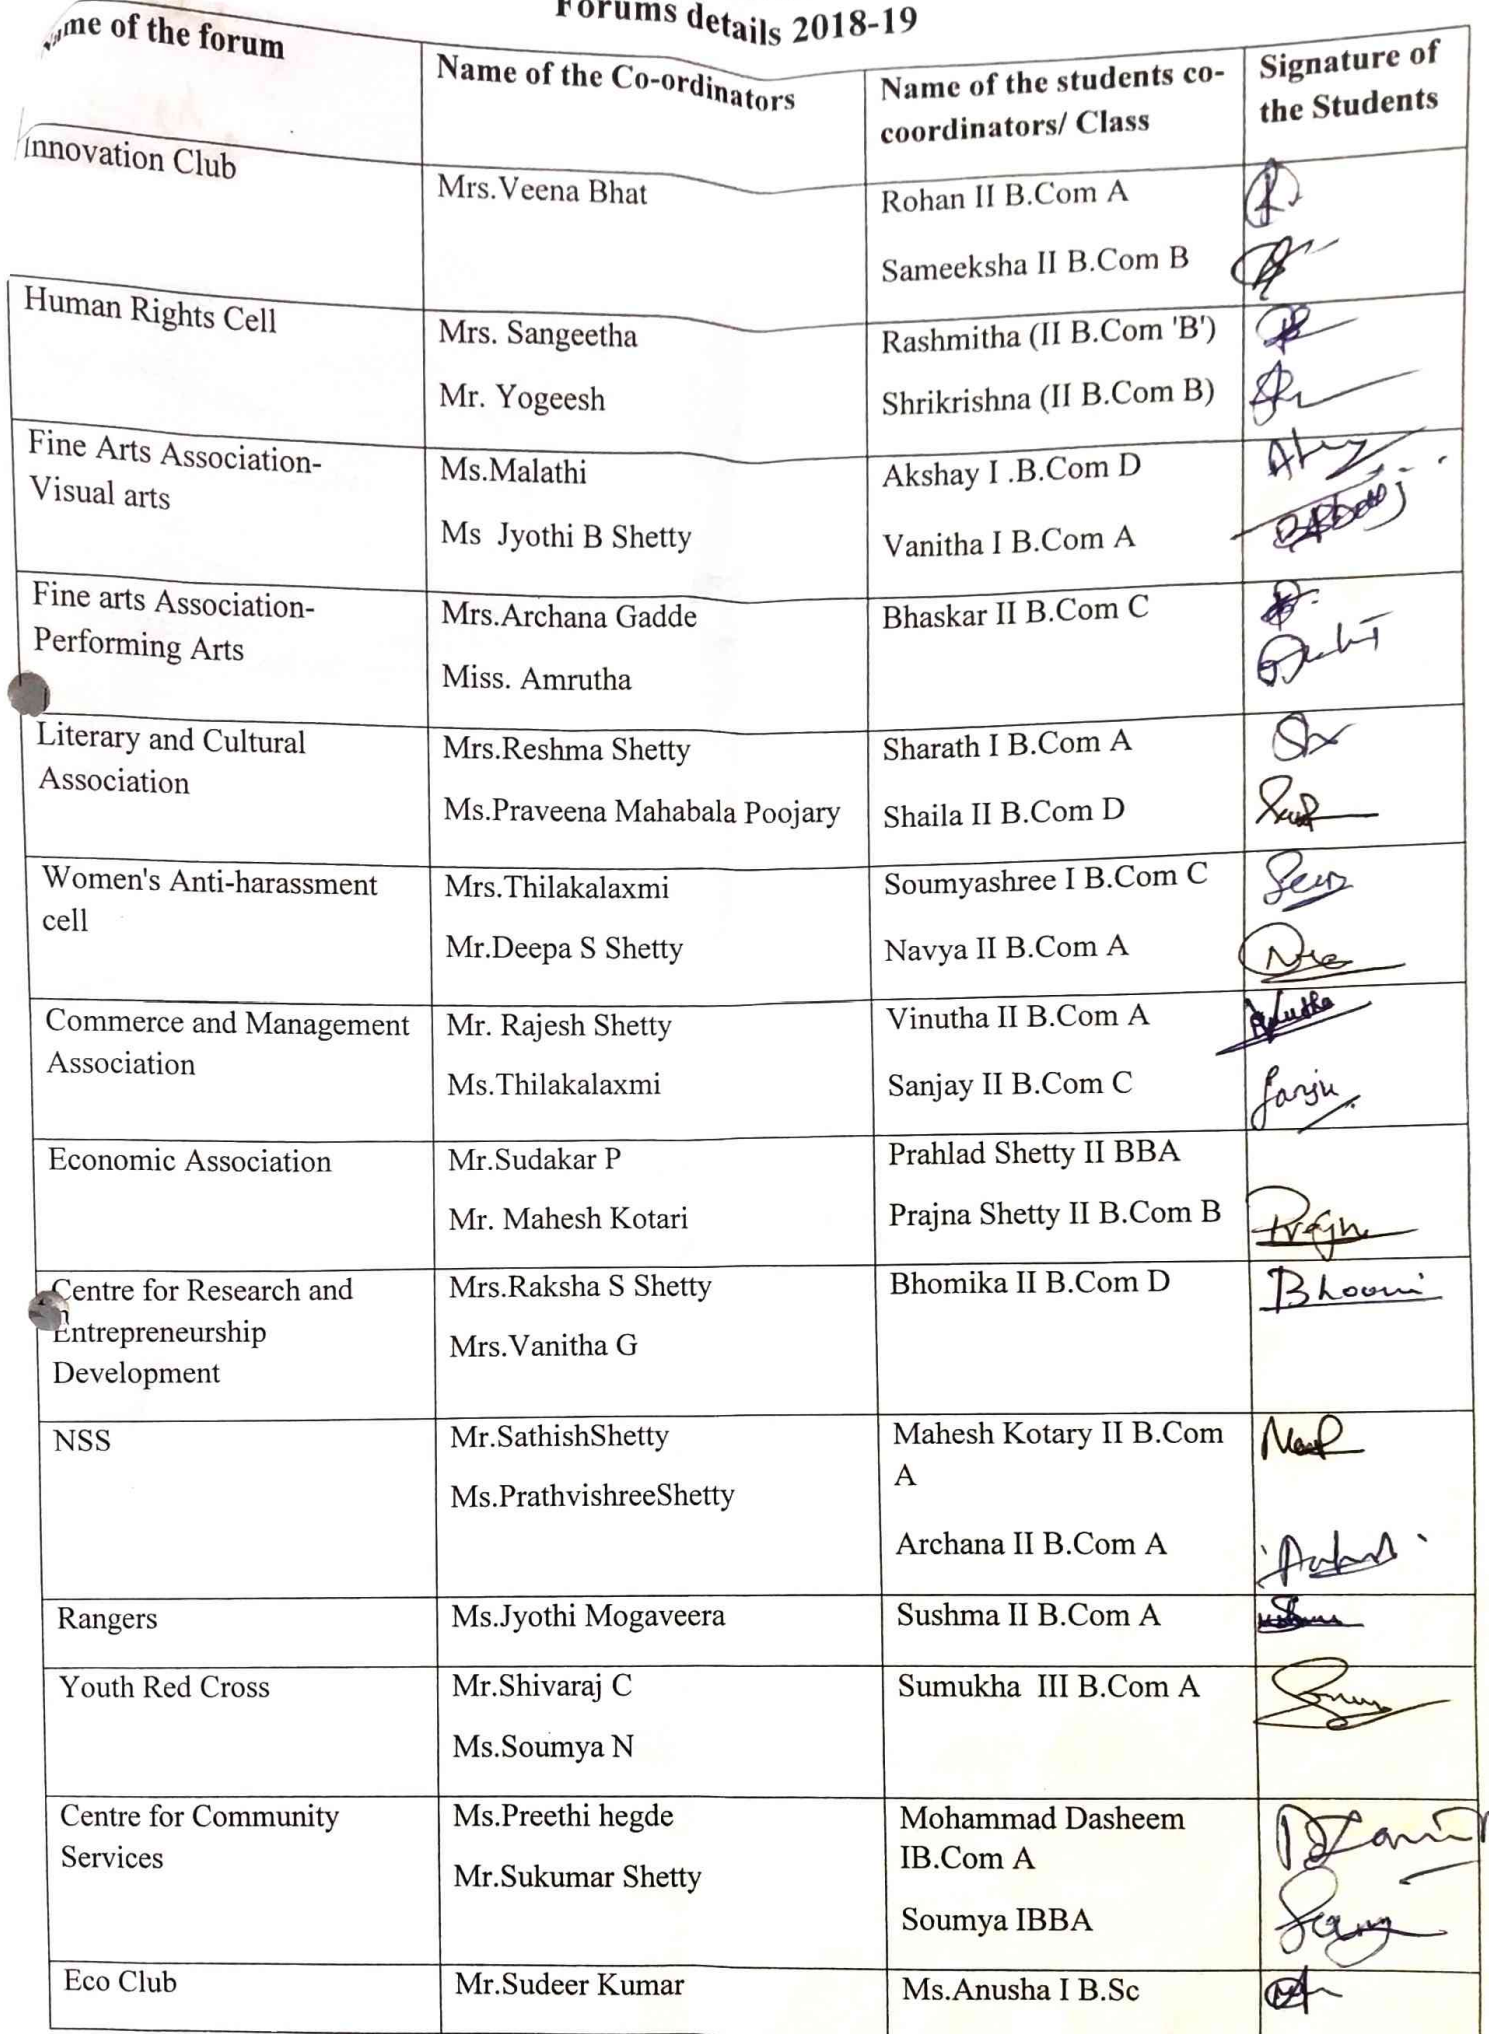 Forums details 2018-19
me of the forum
Name of the Co-ordinators
Name of the students co-
coordinators/ Class
Signature of
the Students
Innovation Club
Mrs.Veena Bhat
Rohan II B.Com A
Sameeksha II B.Com B
Human Rights Cell
Mrs. Sangeetha
Mr. Yogeesh
Rashmitha (II B.Com 'B')
Shrikrishna (II B.Com B)
Fine Arts Association-
Visual arts
Ms.Malathi
Ms Jyothi B Shetty
Akshay I .B.Com D
Vanitha I B.Com A
Fine arts Association-
Performing Arts
Mrs.Archana Gadde
Miss. Amrutha
Bhaskar II B.Com C
Literary and Cultural
Association
Mrs.Reshma Shetty
Ms.Praveena Mahabala Poojary
Sharath I B.Com A
Shaila II B.Com D
Women's Anti-harassment
cell
Mrs.Thilakalaxmi
Mr.Deepa S Shetty
Soumyashree I B.Com C
Navya II B.Com A
Commerce and Management
Association
Mr. Rajesh Shetty
Ms.Thilakalaxmi
Vinutha II B.Com A
Sanjay II B.Com C
Sanju
Economic Association
Mr.Sudakar P
Mr. Mahesh Kotari
Prahlad Shetty II BBA
Prajna Shetty II B.Com B
Centre for Research and
Entrepreneurship
Development
Mrs.Raksha S Shetty
Mrs.Vanitha G
Bhomika II B.Com D
Bhoomi
NSS
Mr.SathishShetty
Ms.PrathvishreeShetty
Mahesh Kotary II B.Com
A
Archana II B.Com A
Rangers
Ms.Jyothi Mogaveera
Sushma II B.Com A
Youth Red Cross
Mr.Shivaraj C
Ms.Soumya N
Sumukha III B.Com A
Centre for Community
Services
Ms.Preethi hegde
Mr.Sukumar Shetty
Mohammad Dasheem
IB.Com A
Soumya IBBA
Eco Club
Mr.Sudeer Kumar
Ms.Anusha I B.Sc